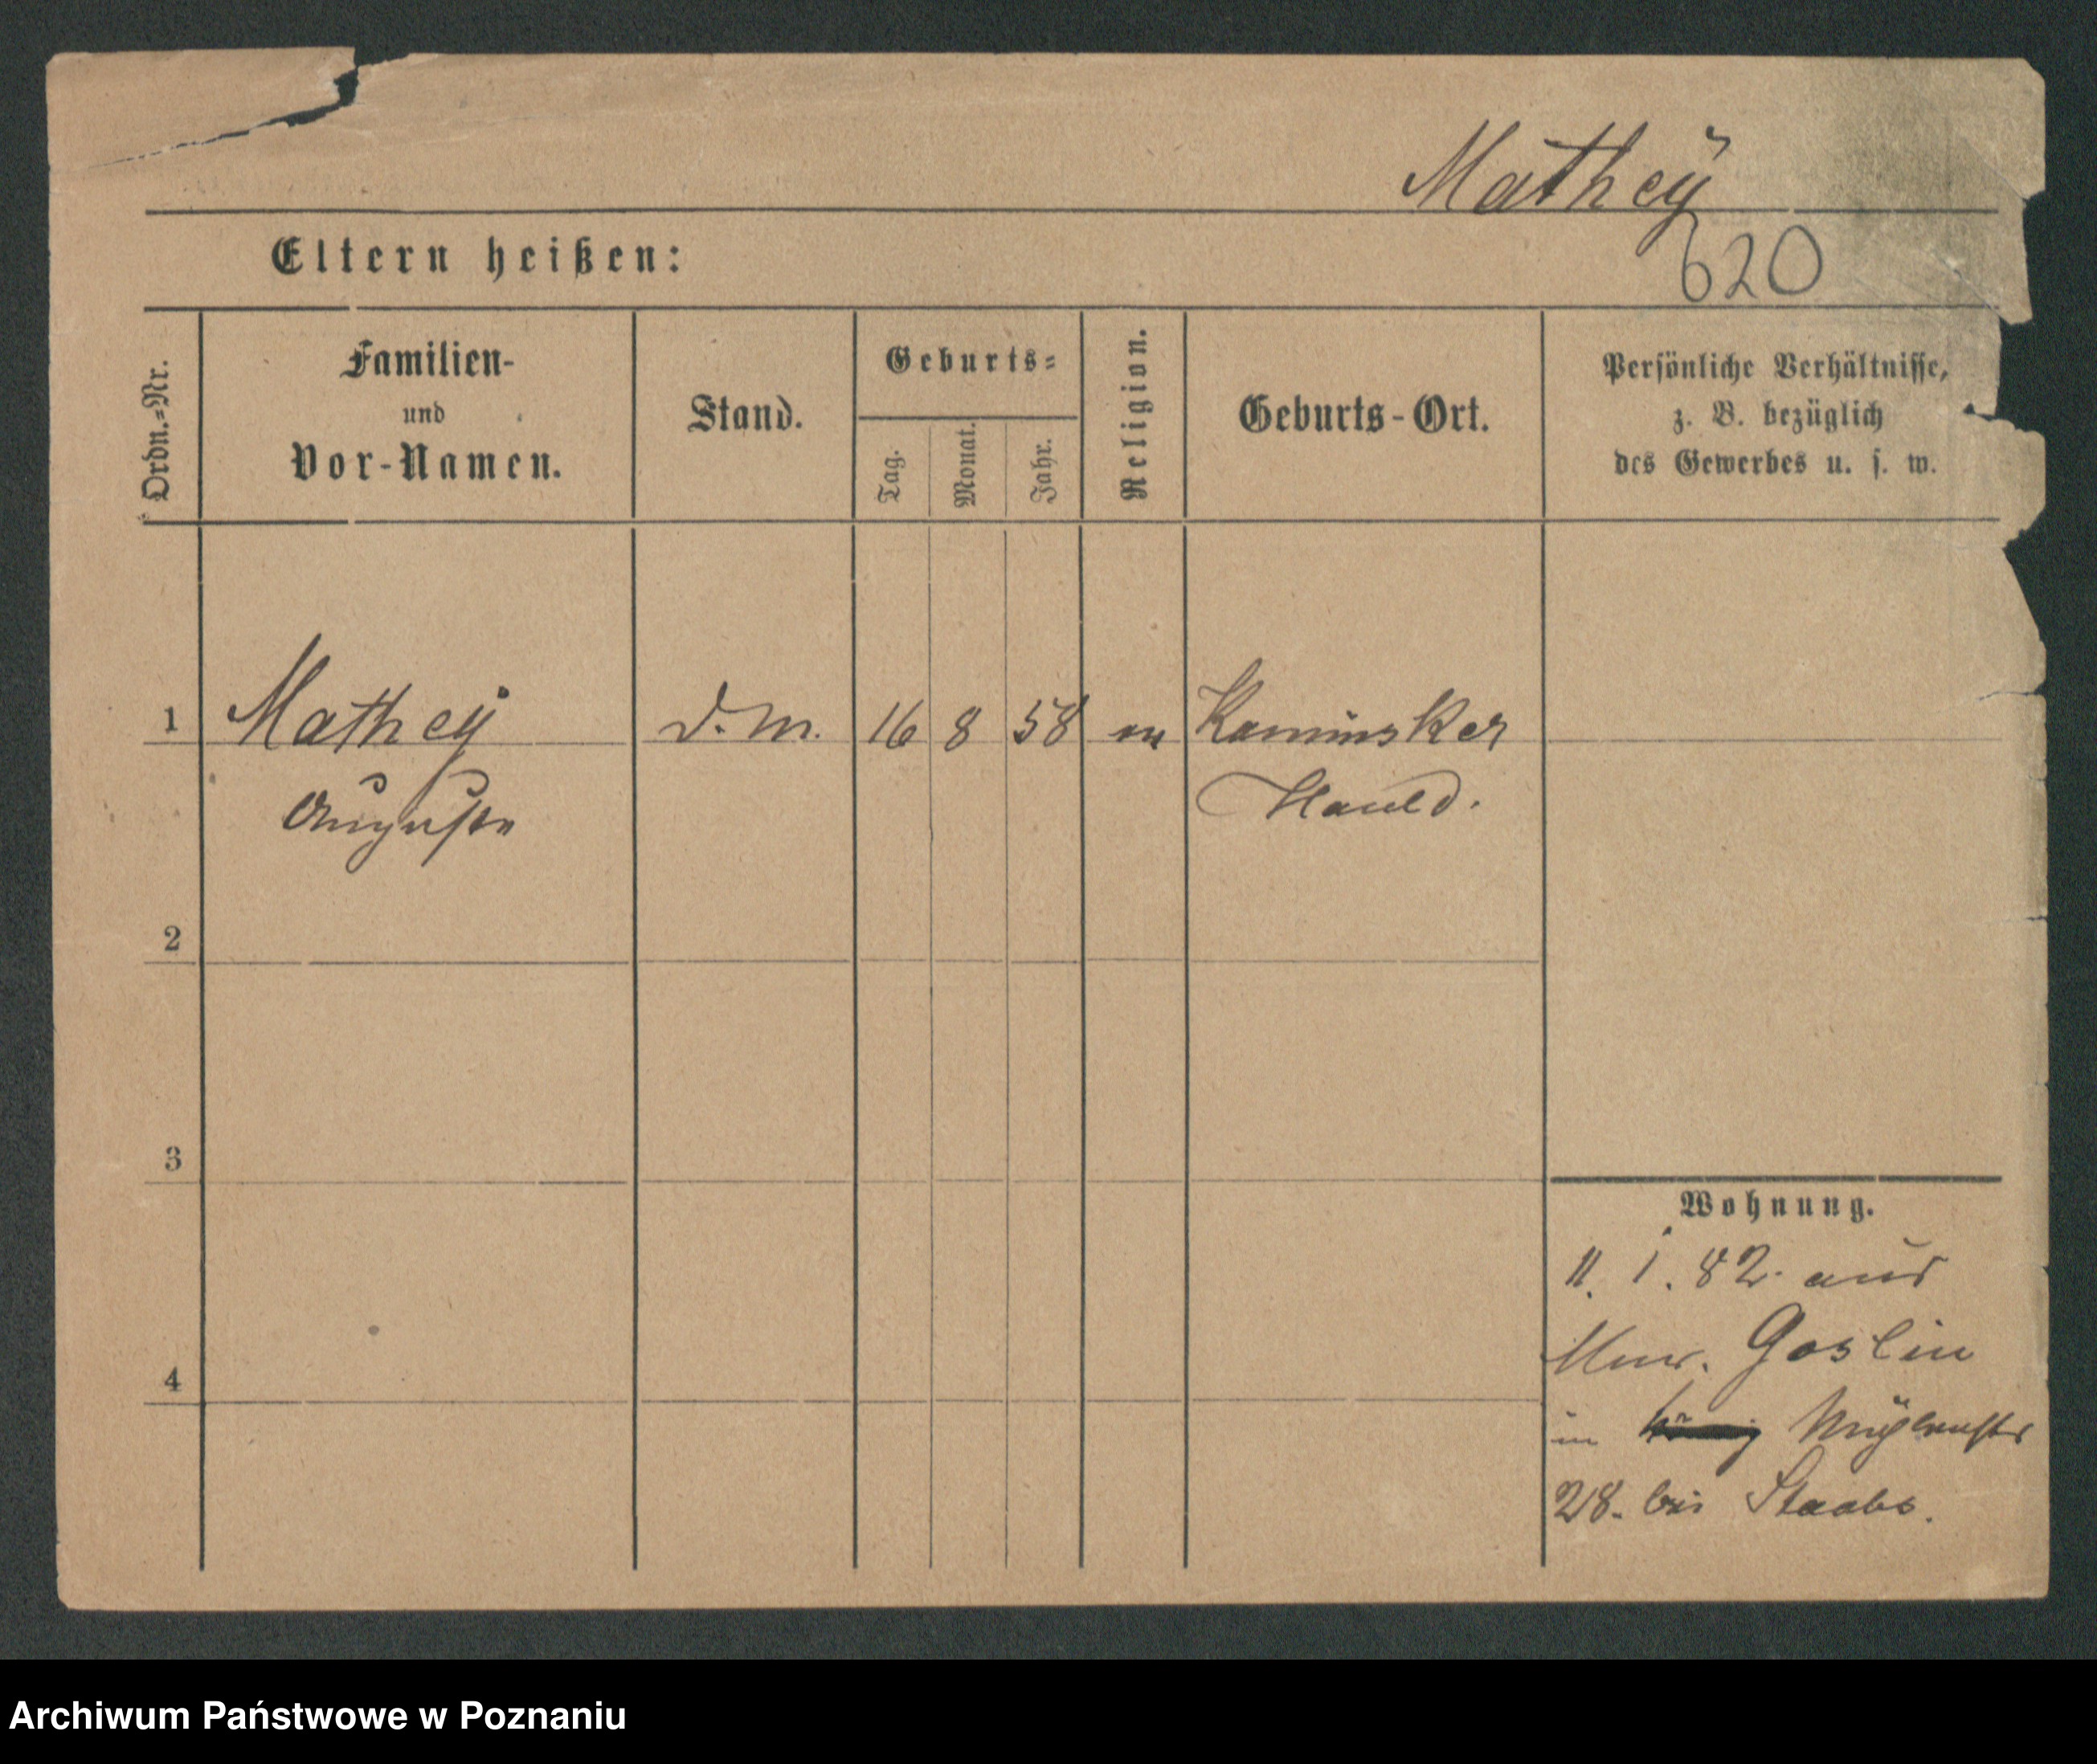 Mathey
620
Eltern heißen:
Ordn.=Nr.
Familien-
und
Vor-Namen.
Stand.
Geburts=
Tag.
Monat.
Jahr.
Religion.
Geburts-Ort.
Persönliche Verhältnisse,
z. B. bezüglich
des Gewerbes u. s. w.
1 Mathey D. M. 16 8 58 ev Kaminsker
Auguste Hauld.
2
3
4
Wohnung.
11. 1. 82. aus
Mur. Goslin
in
28. bei Staabs.
Archiwum Państwowe w Poznaniu